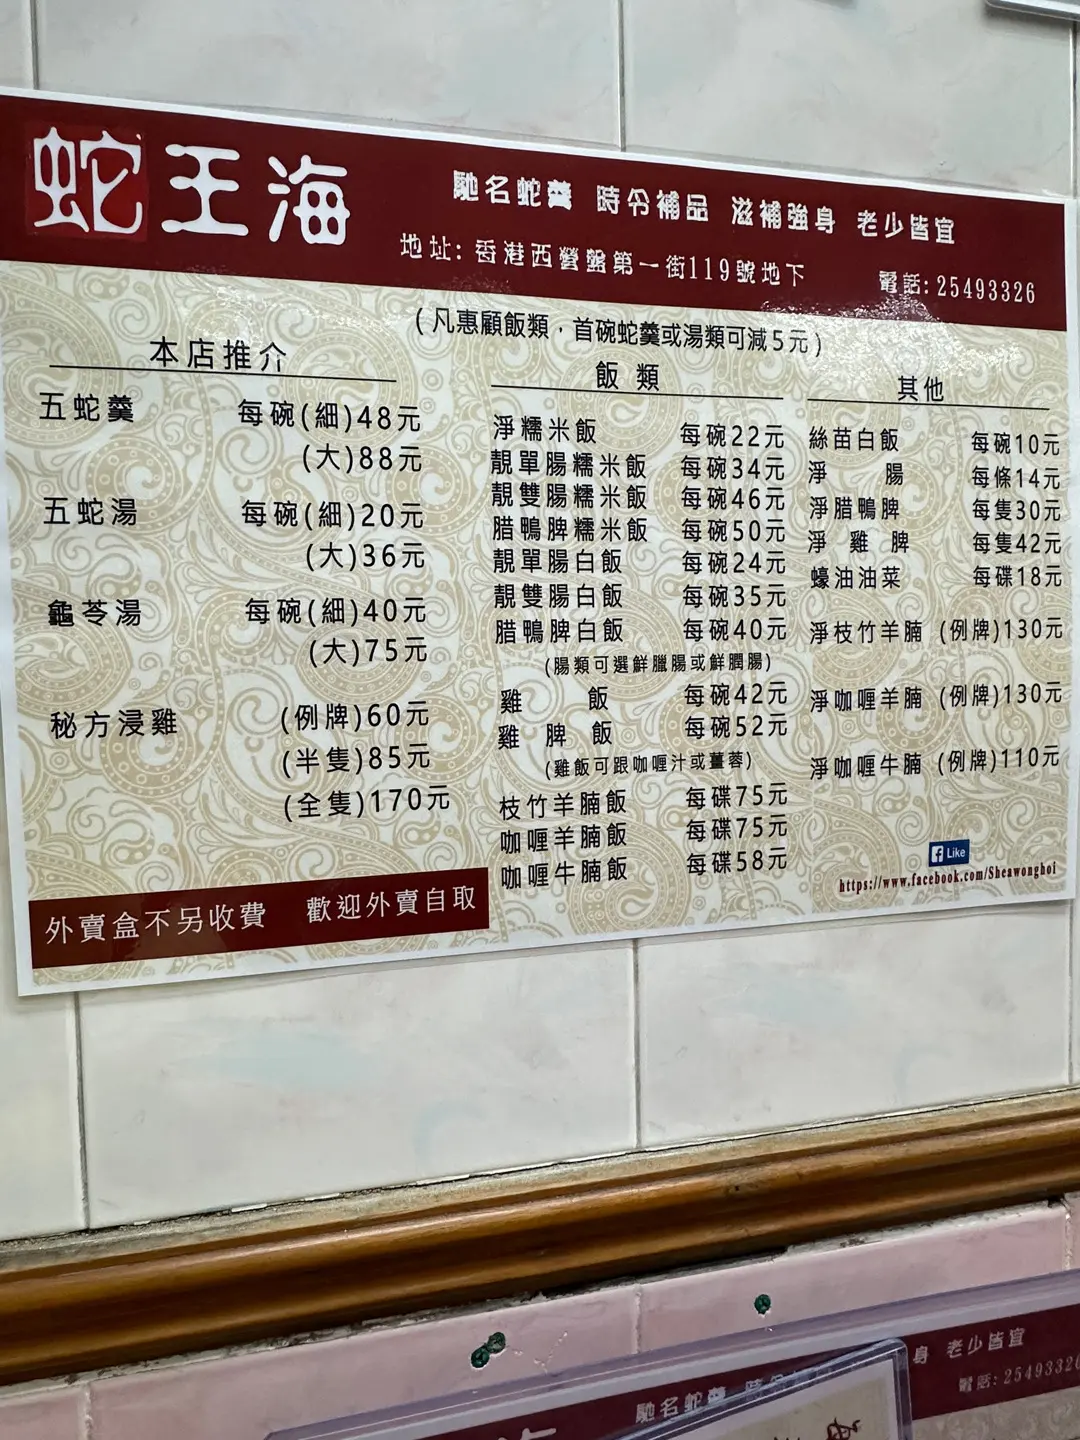 蛇王海
馳名蛇羹 時令補品 滋補強身 老少皆宜
地址: 香港西營盤第一街119號地下 電話: 25493326
(凡惠顧飯類，首碗蛇羹或湯類可減5元)
本店推介
五蛇羹 每碗(細)48元
(大)88元
五蛇湯 每碗(細)20元
(大)36元
龜苓湯 每碗(細)40元
(大)75元
秘方浸雞 (例牌)60元
(半隻)85元
(全隻)170元
外賣盒不另收費 歡迎外賣自取
飯類
淨糯米飯 每碗22元
靚單腸糯米飯 每碗34元
靚雙腸糯米飯 每碗46元
腊鴨脾糯米飯 每碗50元
靚單腸白飯 每碗24元
靚雙腸白飯 每碗35元
腊鴨脾白飯 每碗40元
(腸類可選鮮臘腸或鮮潤腸)
雞飯 每碗42元
雞脾飯 每碗52元
(雞飯可跟咖喱汁或薑蓉)
枝竹羊腩飯 每碟75元
咖喱羊腩飯 每碟75元
咖喱牛腩飯 每碟58元
其他
絲苗白飯 每碗10元
淨腸 每條14元
淨腊鴨脾 每隻30元
淨雞脾 每隻42元
蠔油油菜 每碟18元
淨枝竹羊腩 (例牌)130元
淨咖喱羊腩 (例牌)130元
淨咖喱牛腩 (例牌)110元
Like
https://www.facebook.com/Sheawonghoi
身 老少皆宜
馳名蛇羹 時令
電話: 25493326